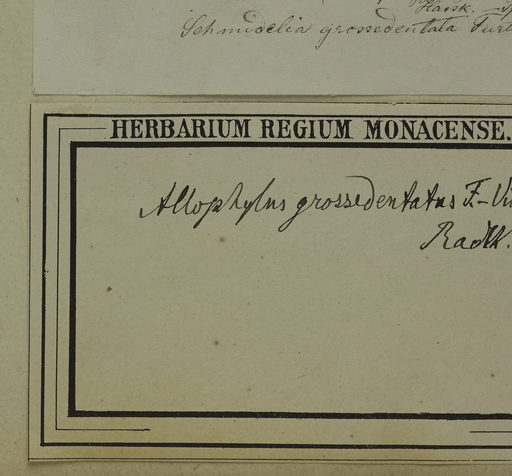 Hassk.
Schmidelia grossedentata Turcz
HERBARIUM REGIUM MONACENSE.
Allophylus grossedentatus F.-Vi
Radlk.